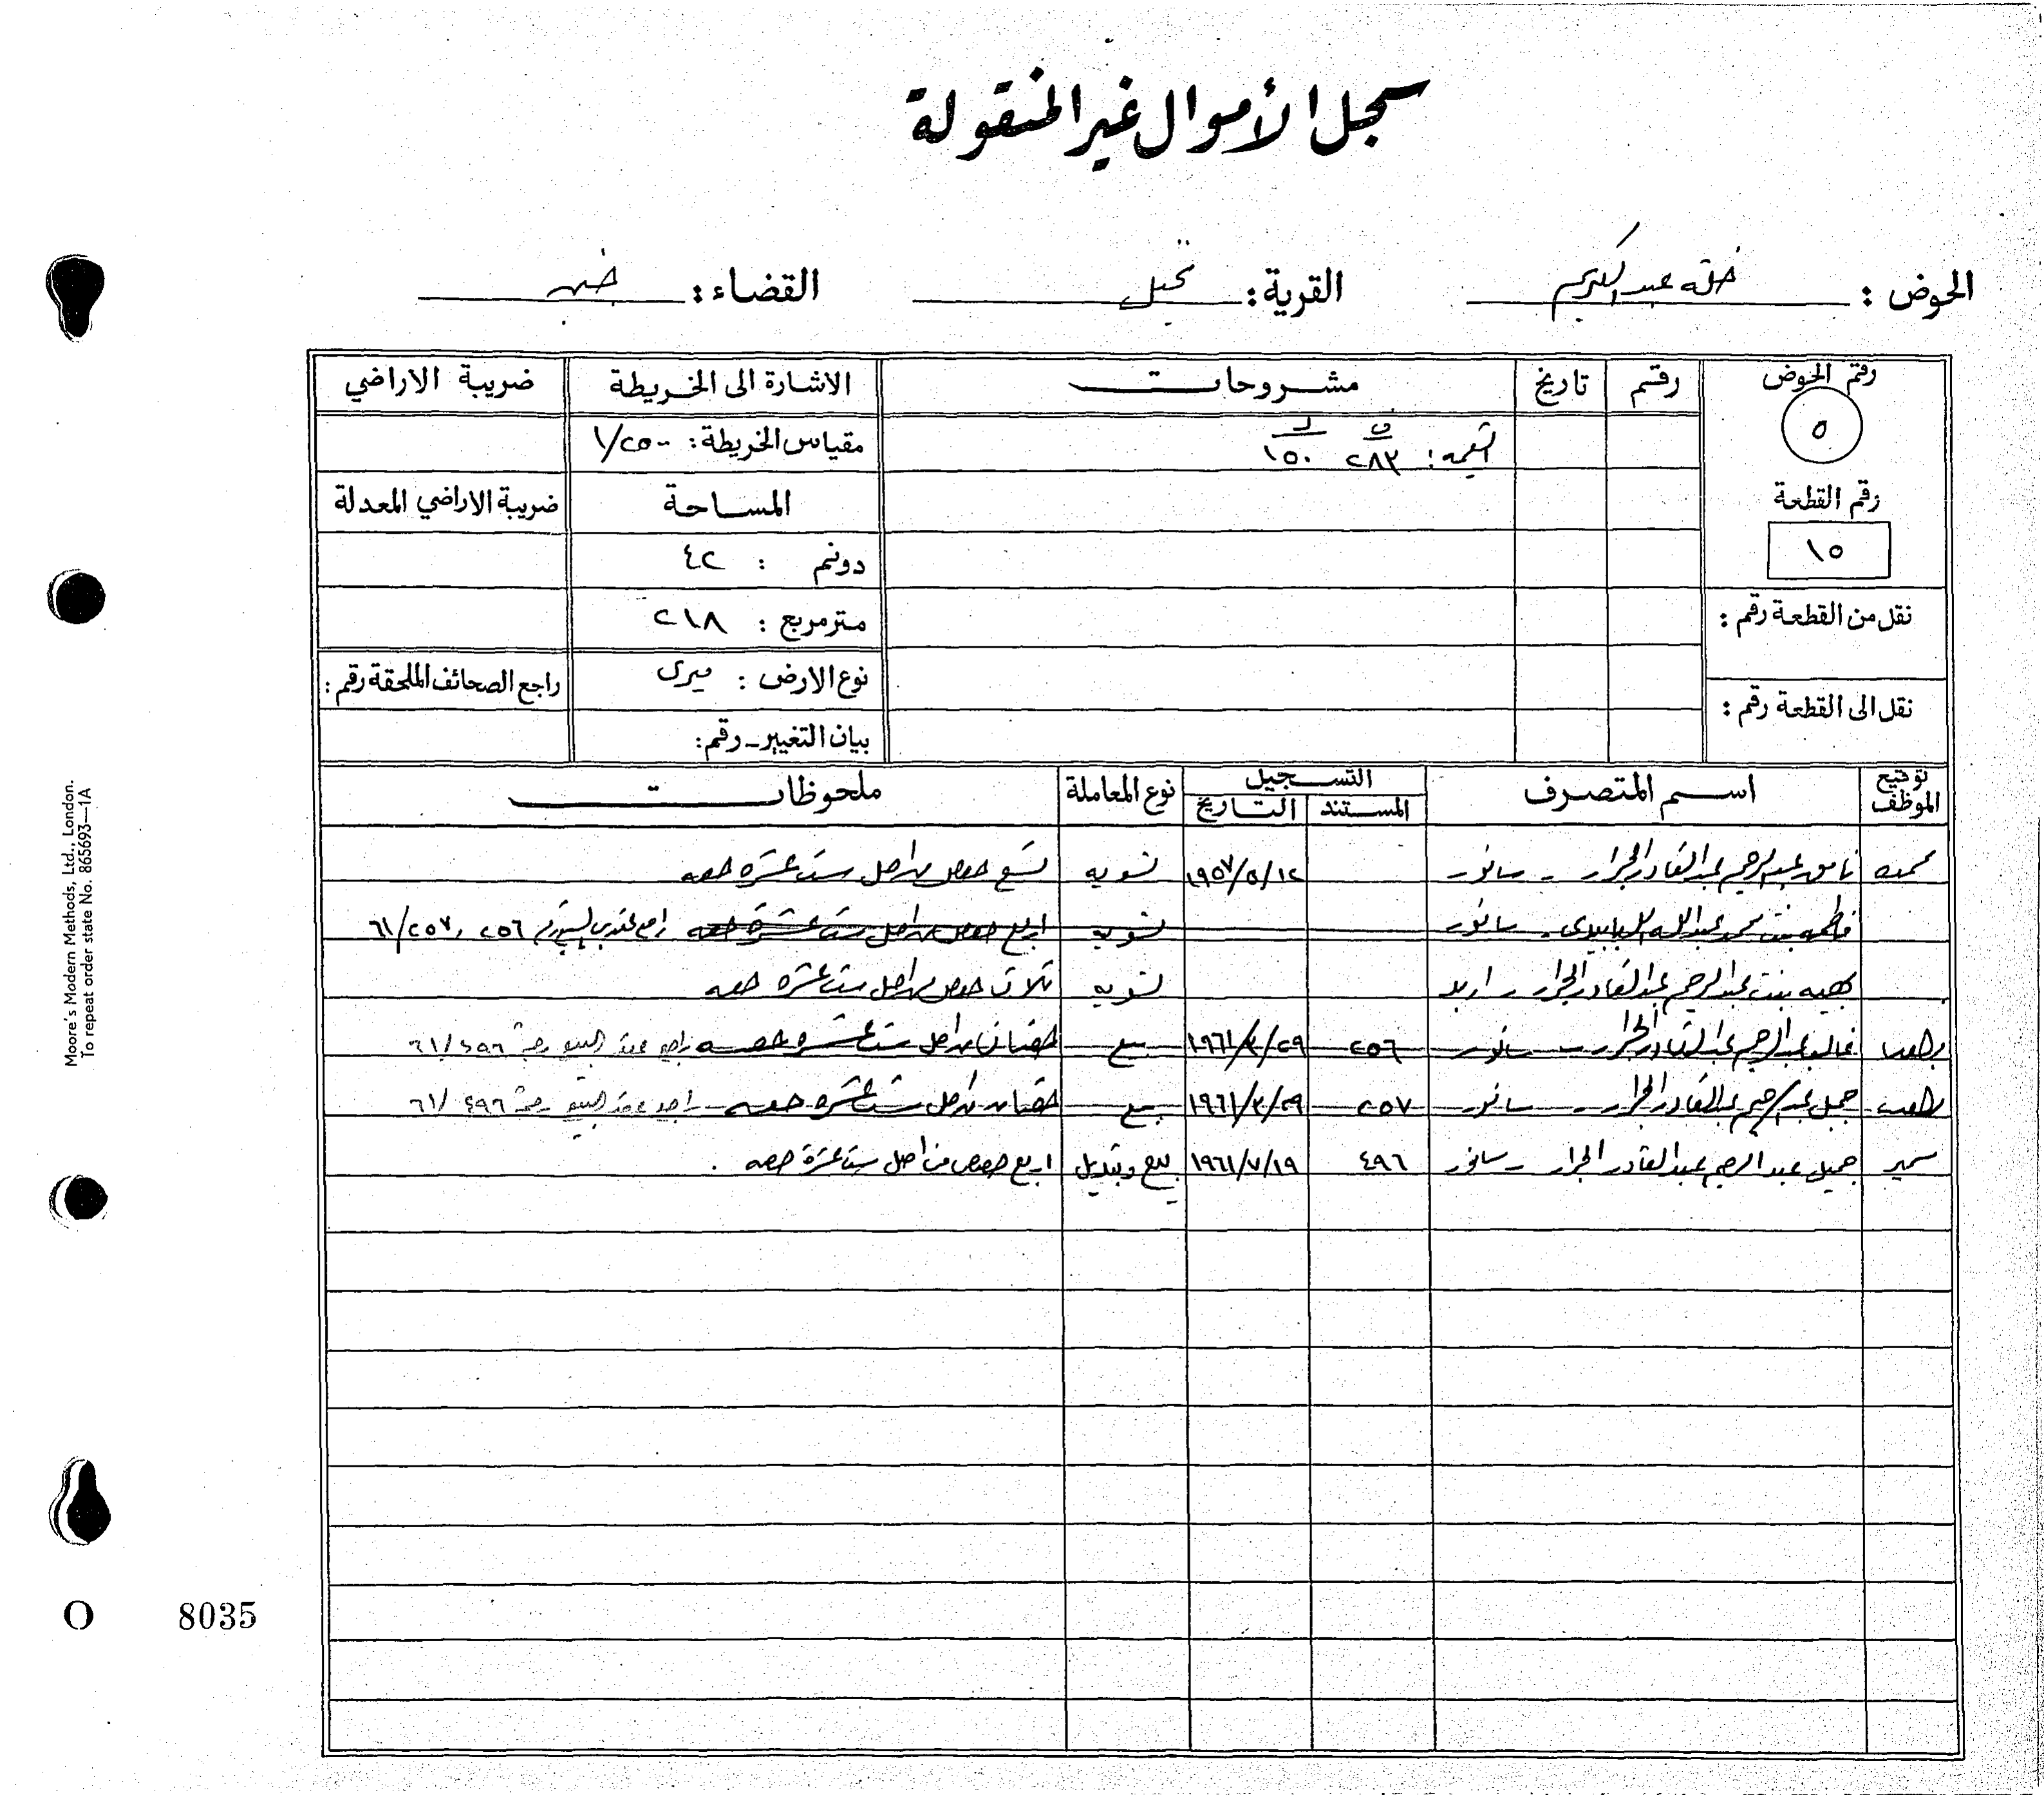 سجل الأموال غير المنقولة
الحوض : خلة عبد الكريم القرية : القضاء : جنين
رقم الحوض رقم تاريخ مشروحات الاشارة الى الخريطة ضريبة الاراضي
٥ القيمة : ٢٨٣ ف ١٥٠ د مقياس الخريطة : ١/٢٥٠٠
رقم القطعة المساحة ضريبة الاراضي المعدلة
١٥ دونم : ٤٢
نقل من القطعة رقم : متر مربع : ٢١٨
نوع الارض : ميرى راجع الصحائف الملحقة رقم :
نقل الى القطعة رقم : بيان التغيير - رقم :
توقيع الموظف اسم المتصرف التسجيل نوع المعاملة ملحوظات
المستند التاريخ
عبد الرحيم عبد القادر الجرار - سانور ١٩٥٧/٥/١٢ تسويه تسع حصص من اصل ست عشره حصه
فاطمه بنت محمد عبد الله - سانور تسويه اربع حصص من اصل ست عشرة حصه راجع ٢٥٦ ، ٦١/٢٥٧
بهيه بنت عبد الرحيم عبد القادر الجرار - اربد تسويه ثلاث حصص من اصل ست عشره حصه
غالب عبد الرحيم عبد القادر الجرار - سانور ٢٥٦ ١٩٦١/٣/٢٩ بيع حصتان من اصل ست عشره حصه راجع عقد البيع رقم ٦١/٤٩٦
جميل عبد الرحيم عبد القادر الجرار - سانور ٢٥٧ ١٩٦١/٣/٢٩ بيع حصتان من اصل ست عشره حصه راجع عقد البيع رقم ٦١/٤٩٦
سمير جميل عبد الرحيم عبد القادر الجرار - سانور ٤٩٦ ١٩٦١/٧/١٩ بيع وتبديل اربع حصص من اصل ست عشرة حصه .
Moore's Modern Methods, Ltd., London.
To repeat order state No. 865693—1A
O 8035